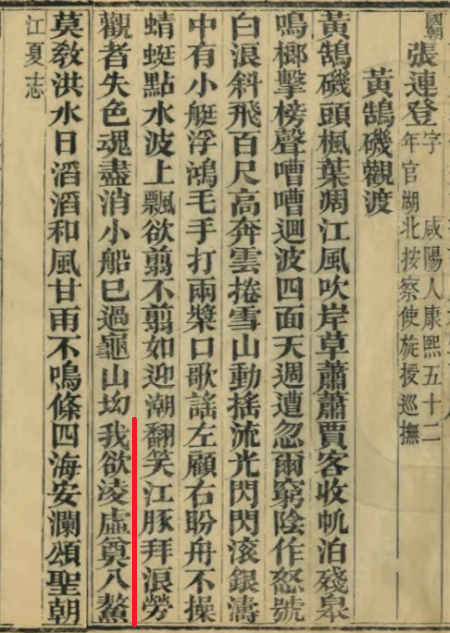 國朝張連登字 咸陽人康熙五十二
年官湖北按察使旋授巡撫
黃鵠磯觀渡
黃鵠磯頭楓葉凋江風吹岸草蕭蕭賈客收帆泊殘皋
鳴榔擊榜聲嘈嘈迴波四面天週遭忽爾窮陰作怒號
白浪斜飛百尺高奔雲捲雪山動搖流光閃閃滚銀濤
中有小艇浮鴻毛手打兩槳口歌謠左顧右盼舟不操
蜻蜓點水波上飄欲翦不翦如迎潮翻笑江豚拜浪勞
觀者失色魂盡消小船已過龜山坳我欲淩虛奠八鰲
莫敎洪水日滔滔和風甘雨不鳴條四海安瀾頌聖朝
江夏志